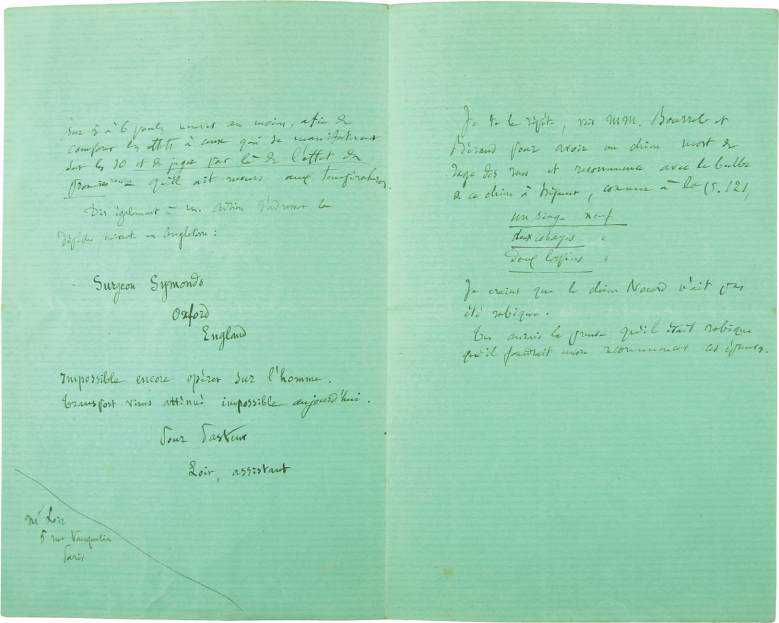 sur 5 à 6 jours suivant en moins, afin de
comparer les effets à ceux qui se manifesteront
sur les 10 et de juger par là de l'effet du
qu'ils ait reçues aux
Dis également à un d'adresser la
dépêche suivante en Angleterre :
Surgeon Symonds
Oxford
England
Impossible encore opérer sur l'homme.
Transport virus atténué impossible aujourd'hui.
Pour Pasteur
Loir, assistant
Mr Loir
5 rue Vauquelin
Paris
Je te le répète, vois MM. Bourrel et
Béraud pour avoir un chien mort de
rage des rues et recommence avec le bulbe
de ce chien à trépaner, comme à la p. 121,
un singe neuf
deux cobayes "
deux lapins "
Je crains que le chien Nocard n'ait pas
été rabique.
Tu aurais la preuve qu'il était rabique
qu'il faudrait recommencer ces épreuves.